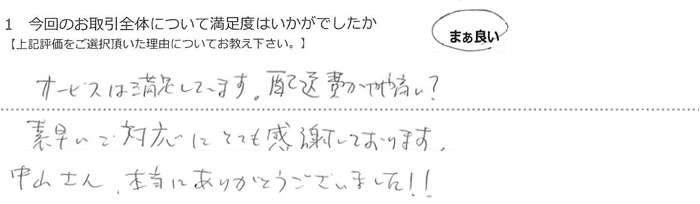 1 今回のお取引全体について満足度はいかがでしたか
【上記評価をご選択頂いた理由についてお教え下さい。】
まぁ良い
サービスは満足しています。配送費がやや高い?
素早いご対応にとても感謝しております。
中山さん、本当にありがとうございました!!